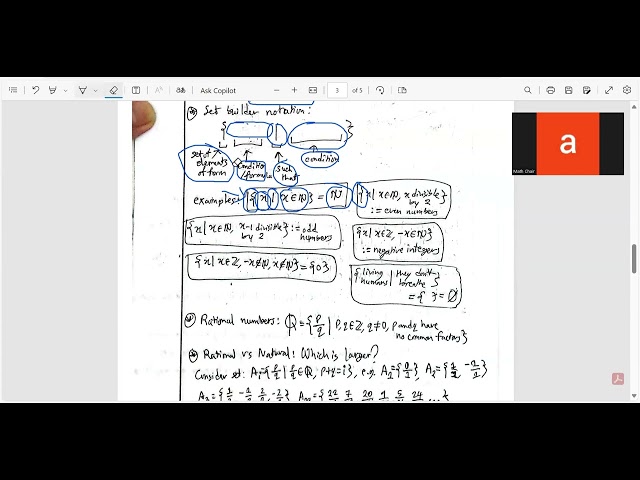 Ask Copilot
3 of 5
Set builder notation:
{ | }
set of elements of form
condition/formula
such that
condition
examples: {x | x∈ℕ} = ℕ
{x | x∈ℕ, x divisible by 2} := even numbers
{x | x∈ℕ, x-1 divisible by 2} := odd numbers
{x | x∈ℤ, -x∈ℕ} := negative integers
{x | x∈ℤ, -x∉ℕ, x∉ℕ} = {0}
{living humans | they don't breathe} = { } = ∅
Rational numbers: ℚ = {p/q | p,q∈ℤ, q≠0, p and q have no common factors}
Rational vs Natural: Which is larger?
Consider set: A₁={p/q | p/q∈ℚ, p+q=i}, e.g. A₁={0/1}, A₂={1/1, -1/1}
a
Math Chair